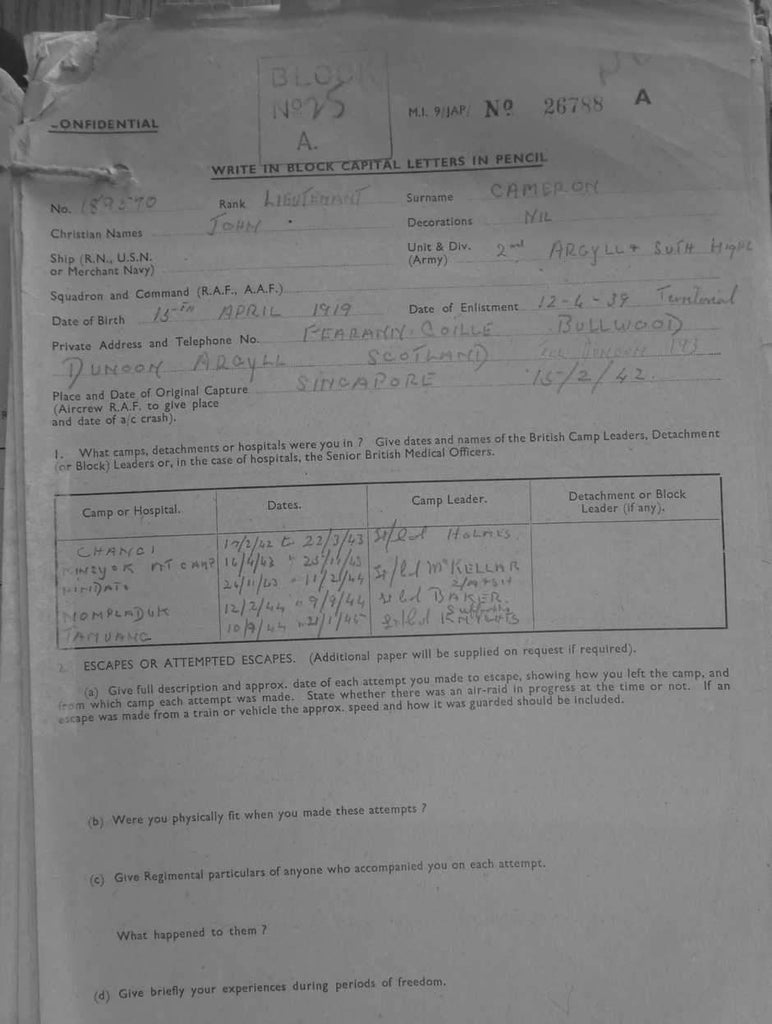 BLOCK
No 25
A.
M.I. 9/JAP/ No 26788 A
ONFIDENTIAL
WRITE IN BLOCK CAPITAL LETTERS IN PENCIL
No. Rank LIEUTENANT Surname CAMERON
Christian Names JOHN Decorations NIL
Ship (R.N., U.S.N. or Merchant Navy) Unit & Div. (Army) 2nd ARGYLL + SUTH HIGH
Squadron and Command (R.A.F., A.A.F.)
Date of Birth 15TH APRIL 1919 Date of Enlistment 12-4-39 Territorial
Private Address and Telephone No. FEARANN COILLE BULLWOOD
DUNOON ARGYLL SCOTLAND TEL DUNOON 193
Place and Date of Original Capture SINGAPORE 15/2/42.
(Aircrew R.A.F. to give place
and date of a/c crash).
1. What camps, detachments or hospitals were you in ? Give dates and names of the British Camp Leaders, Detachment
(or Block) Leaders or, in the case of hospitals, the Senior British Medical Officers.
Camp or Hospital. Dates. Camp Leader. Detachment or Block Leader (if any).
CHANGI 17/2/42 to 22/3/43 Lt/Col HOLMES.
Lt/Col McKELLAR
12/2/44 " 9/9/44 Lt Col BAKER.
TAMUANG Lt/Col
2. ESCAPES OR ATTEMPTED ESCAPES. (Additional paper will be supplied on request if required).
(a) Give full description and approx. date of each attempt you made to escape, showing how you left the camp, and
from which camp each attempt was made. State whether there was an air-raid in progress at the time or not. If an
escape was made from a train or vehicle the approx. speed and how it was guarded should be included.
(b) Were you physically fit when you made these attempts ?
(c) Give Regimental particulars of anyone who accompanied you on each attempt.
What happened to them ?
(d) Give briefly your experiences during periods of freedom.